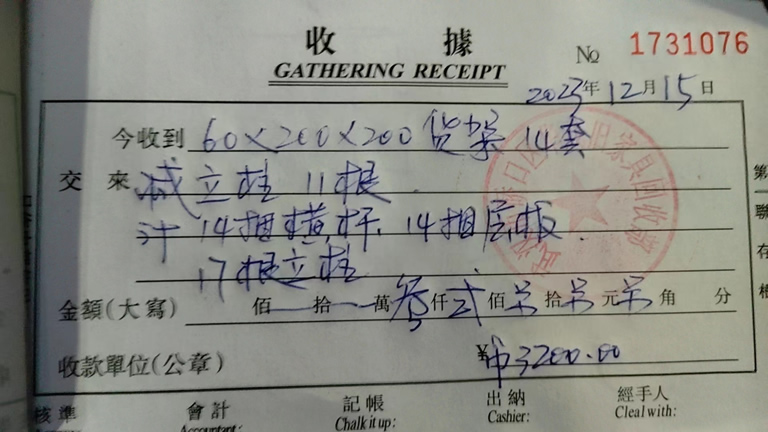 收 據
GATHERING RECEIPT
№ 1731076
2023年12月15日
今收到 60×200×200货架 14套
交 来 减立柱 11根
计 14捆横杆, 14捆层板.
17根立柱
金額(大寫) 佰 拾 萬 叁仟 贰佰 零拾 零元 零角 分
收款單位(公章) ¥ 3200.00
第
聯
存
根
核準 會計 記帳 出納 經手人
Accountant: Chalk it up: Cashier: Cleal with: